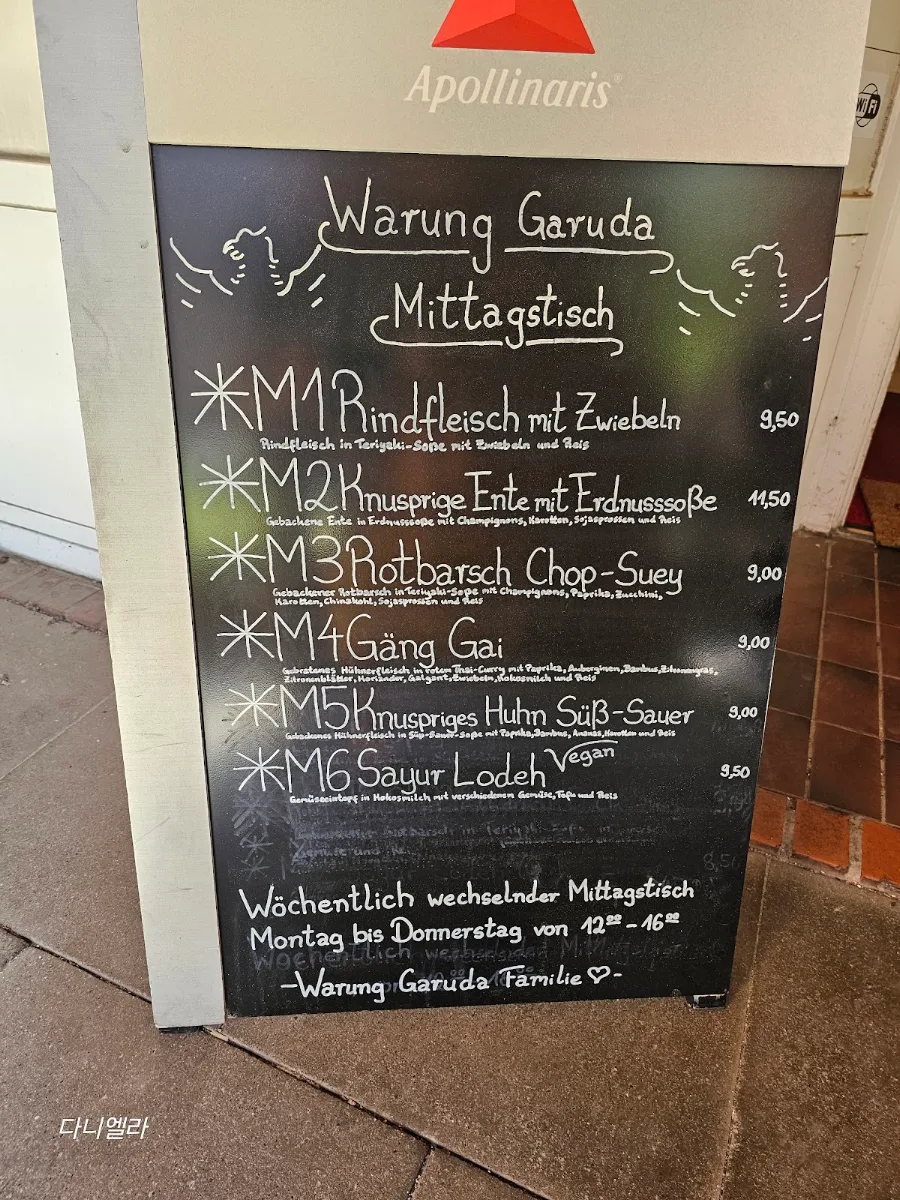 Apollinaris®
WiFi
Warung Garuda
Mittagstisch
M1 Rindfleisch mit Zwiebeln 9,50
Rindfleisch in Teriyaki-Soße mit Zwiebeln und Reis
M2 Knusprige Ente mit Erdnusssoße 11,50
Gebackene Ente in Erdnusssoße mit Champignons, Karotten, Sojasprossen und Reis
M3 Rotbarsch Chop-Suey 9,00
Gebackener Rotbarsch in Teriyaki-Soße mit Champignons, Paprika, Zucchini,
Karotten, Chinakohl, Sojasprossen und Reis
M4 Gäng Gai 9,00
Gebratenes Hühnerfleisch in rotem Thai-Curry mit Paprika, Auberginen, Bambus, Zitronengras,
Zitronenblätter, Koriander, Galgant, Zwiebeln, Kokosmilch und Reis
M5 Knuspriges Huhn Süß-Sauer 9,00
Gebackenes Hühnerfleisch in Süß-Sauer-Soße mit Paprika, Bambus, Ananas, Karotten und Reis
M6 Sayur Lodeh Vegan 9,50
Gemüseeintopf in Kokosmilch mit verschiedenen Gemüse, Tofu und Reis
Wöchentlich wechselnder Mittagstisch
Montag bis Donnerstag von 12⁰⁰ - 16⁰⁰
-Warung Garuda Familie ♡-
다니엘라